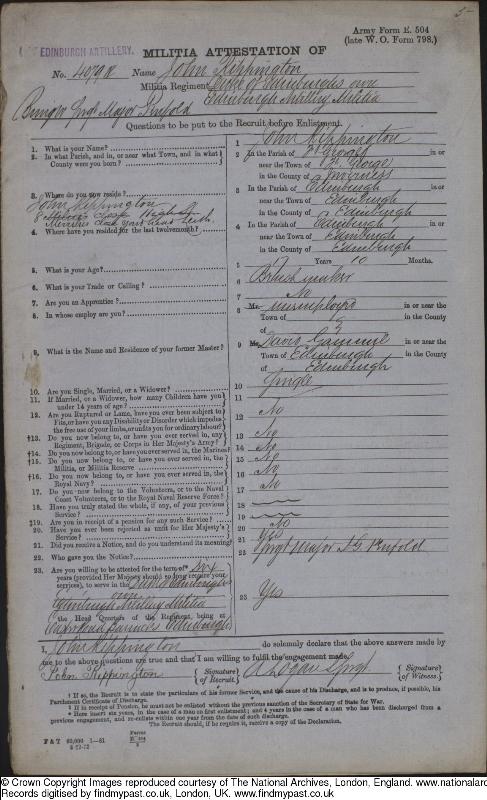 5
Army Form E. 504
(late W. O. Form 798.)
EDINBURGH ARTILLERY.
MILITIA ATTESTATION OF
No. Name John Kippington
Militia Regiment Duke of Edinburghs own
Edinburgh Artillery Militia
Major Penfold
Questions to be put to the Recruit before Enlistment.
1. What is your Name?
1 John Kippington
2. In what Parish, and in, or near what Town, and in what County were you born?
2 In the Parish of St in or
near the Town of St George
in the County of Inverness
3. Where do you now reside?
3 In the Parish of Edinburgh in or
near the Town of Edinburgh
in the County of Edinburgh
John Kippington
4. Where have you resided for the last twelvemonth?
4 In the Parish of Edinburgh in or
near the Town of Edinburgh
in the County of Edinburgh
5. What is your Age?
5 17 Years 10 Months.
6. What is your Trade or Calling?
6 Brushmaker
7. Are you an Apprentice?
7 No
8. In whose employ are you?
8 Mr. unemployed in or near the
Town of in the County
of
9. What is the Name and Residence of your former Master?
9 Mr. in or near the
Town of Edinburgh in the County
of Edinburgh
10. Are you Single, Married, or a Widower?
10 Single
11. If Married, or a Widower, how many Children have you under 14 years of age?
11
12. Are you Ruptured or Lame, have you ever been subject to Fits, or have you any Disability or Disorder which impedes the free use of your limbs, or unfits you for ordinary labour?
12 No
†13. Do you now belong to, or have you ever served in, any Regiment, Brigade, or Corps in Her Majesty's Army?
13 No
†14. Do you now belong to, or have you ever served in, the Marines?
14 No
†15. Do you now belong to, or have you ever served in, the Militia, or Militia Reserve
15 No
†16. Do you now belong to, or have you ever served in, the Royal Navy?
16 No
17. Do you now belong to the Volunteers, or to the Naval Coast Volunteers, or to the Royal Naval Reserve Force?
17 No
18. Have you truly stated the whole, if any, of your previous Service?
18
‡19. Are you in receipt of a pension for any such Service?
19
20. Have you ever been rejected as unfit for Her Majesty's Service?
20 No
21. Did you receive a Notice, and do you understand its meaning?
21 Yes
22. Who gave you the Notice?
22 Sergt Major Penfold
23. Are you willing to be attested for the term of *six
years (provided Her Majesty should so long require your
services), to serve in the Duke Edinburghs
own
Edinburgh Artillery Militia
the Head Quarters of the Regiment, being at
Edinburgh
23 Yes
I, John Kippington do solemnly declare that the above answers made by
me to the above questions are true and that I am willing to fulfil the engagement made.
John Kippington {Signature of Recruit. A Logan Sergt {Signature of Witness.
† If so, the Recruit is to state the particulars of his former Service, and the cause of his Discharge, and is to produce, if possible, his
Parchment Certificate of Discharge.
‡ If in receipt of Pension, he must not be enlisted without the previous sanction of the Secretary of State for War.
* Here insert six years, in the case of a man on first enlistment; and 4 years in the case of a man who has been discharged from a
previous engagement, and re-enlists within one year from the date of such discharge.
The Recruit should, if he require it, receive a copy of the Declaration.
© Crown Copyright Images reproduced courtesy of The National Archives, London, England. www.nationalarc
Records digitised by findmypast.co.uk, London, UK. www.findmypast.co.uk